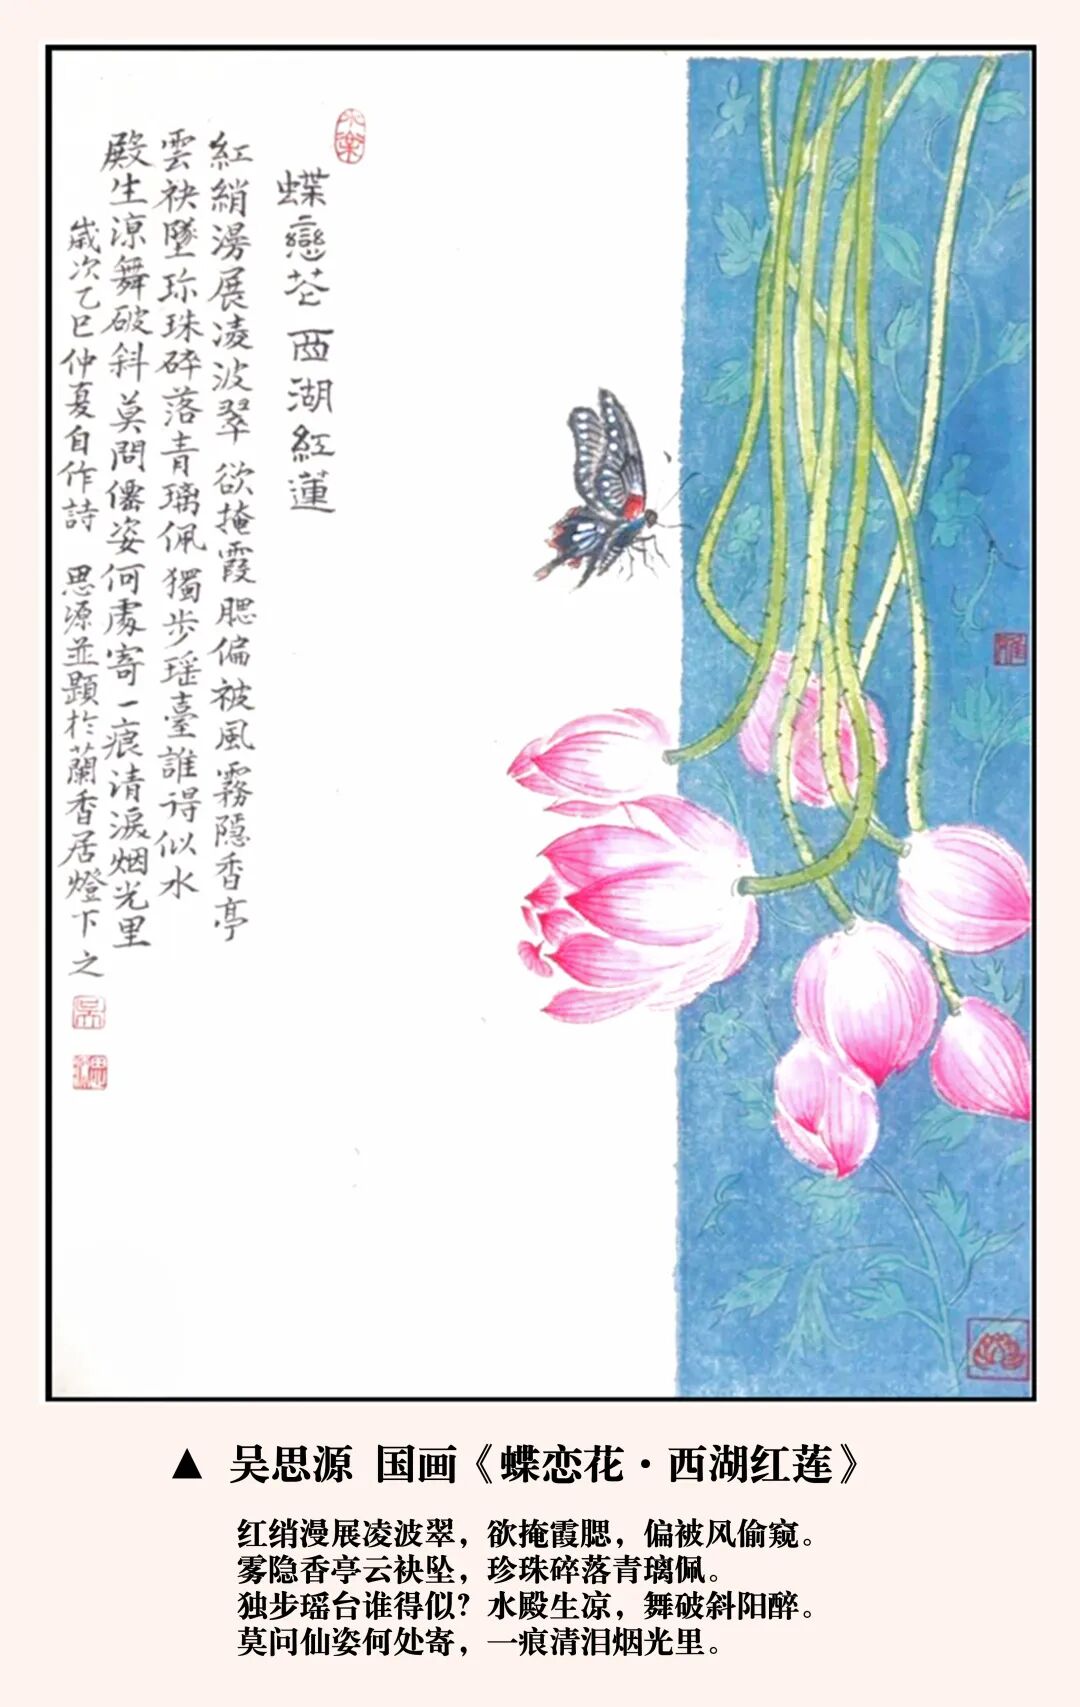 蝶戀花 西湖紅蓮
紅綃漫展凌波翠 欲掩霞腮偏被風霧隱香亭
雲袂墜珎珠碎落青璃佩 獨步瑶臺誰得似水
殿生涼舞破斜莫問僊姿何處寄一痕清淚烟光里
歲次乙巳仲夏自作詩 思源並題於蘭香居燈下之
▲ 吴思源 国画《蝶恋花·西湖红莲》
红绡漫展凌波翠，欲掩霞腮，偏被风偷窥。
雾隐香亭云袂坠，珍珠碎落青璃佩。
独步瑶台谁得似？水殿生凉，舞破斜阳醉。
莫问仙姿何处寄，一痕清泪烟光里。